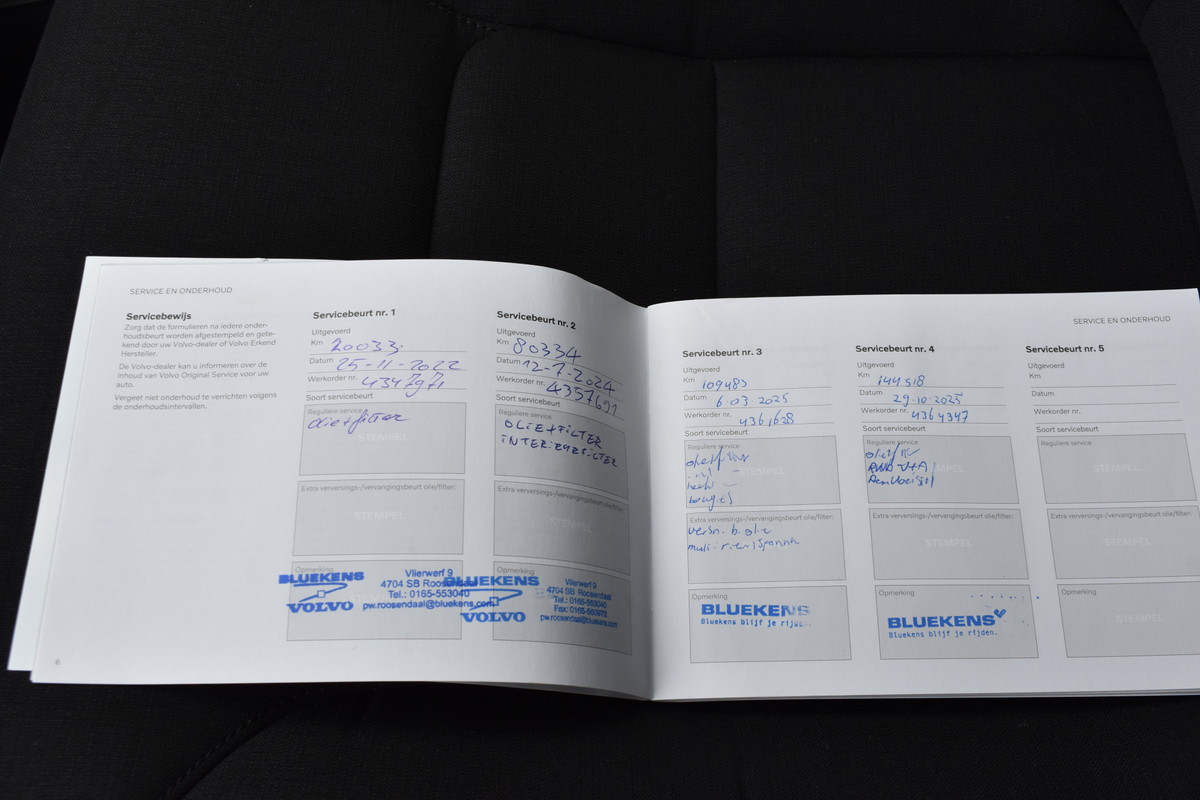 SERVICE EN ONDERHOUD
Servicebewijs
Zorg dat de formulieren na iedere onder-
houdsbeurt worden afgestempeld en gete-
kend door uw Volvo-dealer of Volvo Erkend
Hersteller.
De Volvo-dealer kan u informeren over de
inhoud van Volvo Original Service voor uw
auto.
Vergeet niet onderhoud te verrichten volgens
de onderhoudsintervallen.
6
Servicebeurt nr. 1
Uitgevoerd
Km 20033
Datum 25-11-2022
Werkorder nr. 4347971
Soort servicebeurt
Reguliere service
olie+filter
STEMPEL
Extra verversings-/vervangingsbeurt olie/filter:
STEMPEL
Opmerking
BLUEKENS
VOLVO
Vlierwerf 9
4704 SB Roosendaal
Tel.: 0165-553040
pw.roosendaal@bluekens.com
Servicebeurt nr. 2
Uitgevoerd
Km 80334
Datum 12-7-2024
Werkorder nr. 4357691
Soort servicebeurt
Reguliere service
OLIE+FILTER
INTERIEURFILTER
Extra verversings-/vervangingsbeurt olie/filter:
STEMPEL
Opmerking
BLUEKENS
VOLVO
Vlierwerf 9
4704 SB Roosendaal
Tel.: 0165-553040
pw.roosendaal@bluekens.com
SERVICE EN ONDERHOUD
Servicebeurt nr. 3
Uitgevoerd
Km 109483
Datum 6.03.2025
Werkorder nr. 4361628
Soort servicebeurt
Reguliere service
STEMPEL
bougies
Extra verversings-/vervangingsbeurt olie/filter:
Opmerking
BLUEKENS
Bluekens blijf je rijden.
Servicebeurt nr. 4
Uitgevoerd
Km 144518
Datum 29.10.2025
Werkorder nr. 4364347
Soort servicebeurt
Reguliere service
STEMPEL
Extra verversings-/vervangingsbeurt olie/filter:
STEMPEL
Opmerking
BLUEKENS
Bluekens blijf je rijden.
Servicebeurt nr. 5
Uitgevoerd
Km
Datum
Werkorder nr.
Soort servicebeurt
Reguliere service
STEMPEL
Extra verversings-/vervangingsbeurt olie/filter:
STEMPEL
Opmerking
STEMPEL